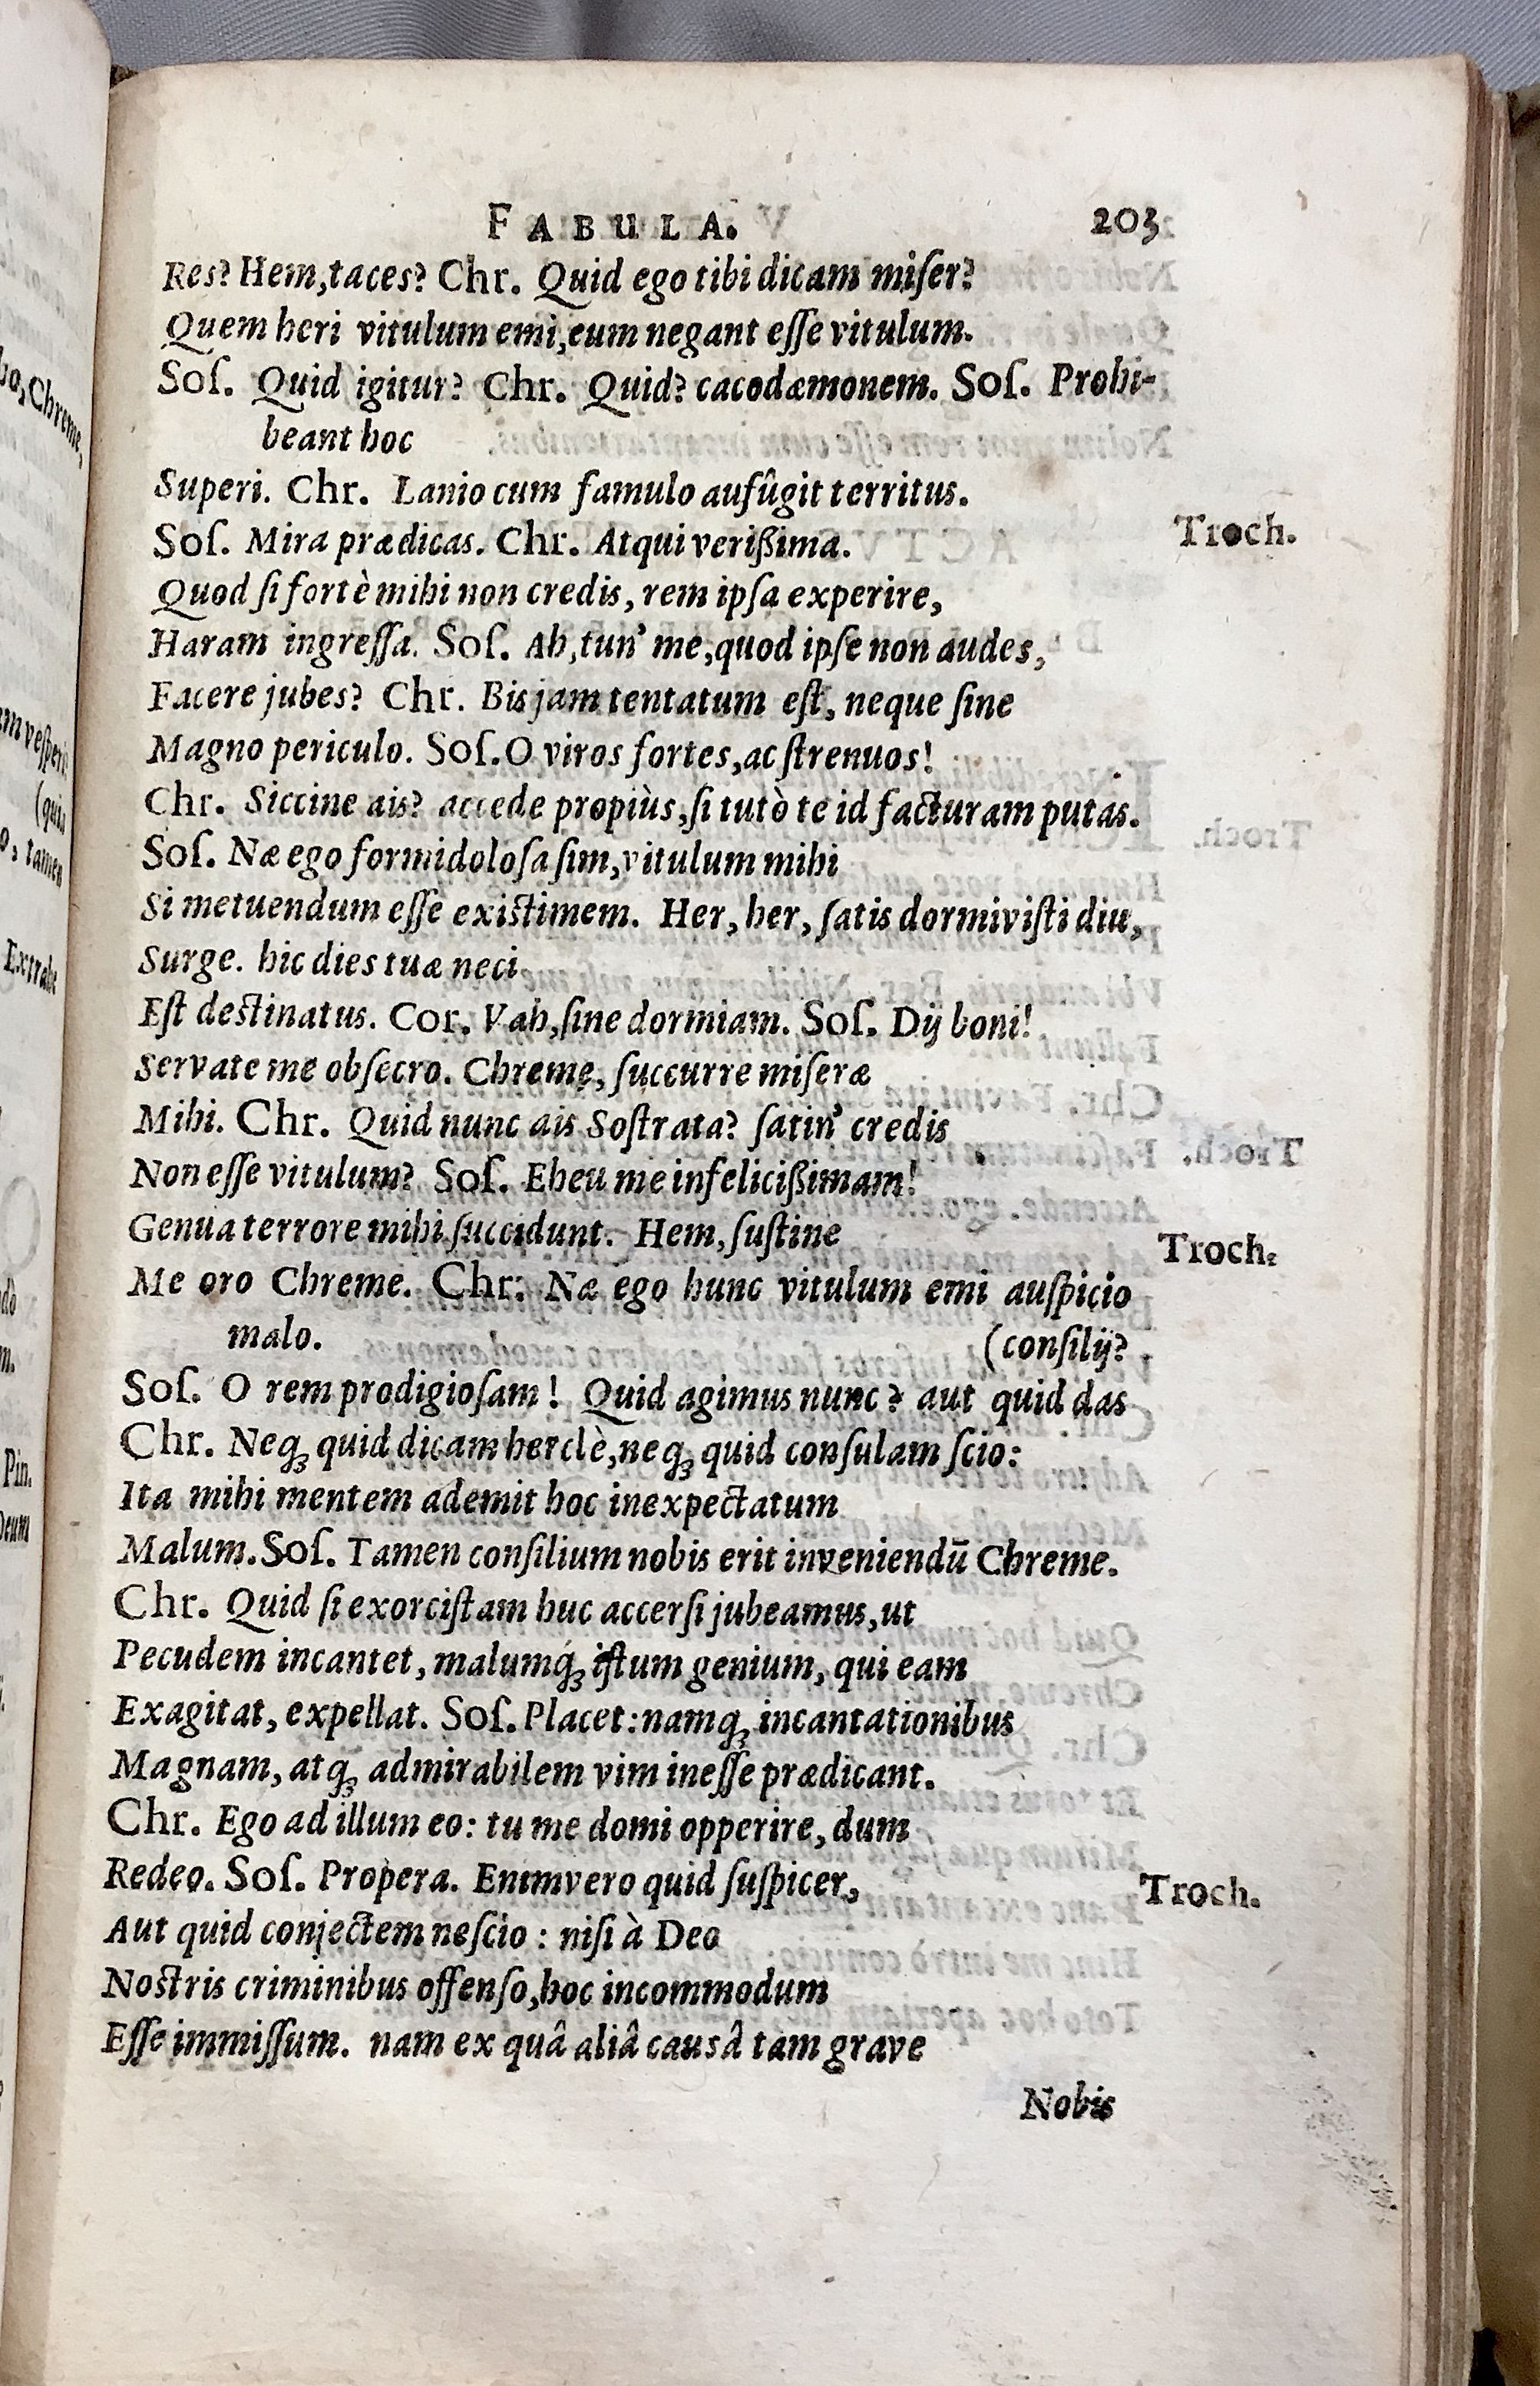 FABULA. 203
Res? Hem, taces? Chr. Quid ego tibi dicam miſer?
Quem heri vitulum emi, eum negant eſſe vitulum.
Soſ. Quid igitur? Chr. Quid? cacodæmonem. Soſ. Prohi-
beant hoc
Superi. Chr. Lanio cum famulo aufûgit territus.
Soſ. Mira prædicas. Chr. Atqui verißima. Troch.
Quod ſi fortè mihi non credis, rem ipſa experire,
Haram ingreſſa. Soſ. Ah, tun' me, quod ipſe non audes,
Facere jubes? Chr. Bis jam tentatum eſt, neque ſine
Magno periculo. Soſ. O viros fortes, ac ſtrenuos!
Chr. Siccine ais? accede propiùs, ſi tutò te id facturam putas.
Soſ. Næ ego formidoloſa ſim, vitulum mihi
Si metuendum eſſe existimem. Her, her, ſatis dormiviſti diu,
Surge. hic dies tuæ neci
Eſt destinatus. Cor. Vah, ſine dormiam. Soſ. Dij boni!
Servate me obſecro. Chreme, ſuccurre miſeræ
Mihi. Chr. Quid nunc ais Soſtrata? ſatin' credis
Non eſſe vitulum? Soſ. Eheu me infelicißimam!
Genua terrore mihi ſuccidunt. Hem, ſuſtine Troch.
Me oro Chreme. Chr. Næ ego hunc vitulum emi auſpicio
malo. (conſilij?
Soſ. O rem prodigioſam! Quid agimus nunc? aut quid das
Chr. Neq; quid dicam herclè, neq; quid conſulam ſcio:
Ita mihi mentem ademit hoc inexpectatum
Malum. Soſ. Tamen conſilium nobis erit inveniendū Chreme.
Chr. Quid ſi exorciſtam huc accerſi jubeamus, ut
Pecudem incantet, malumq́; iſtum genium, qui eam
Exagitat, expellat. Soſ. Placet: namq; incantationibus
Magnam, atq; admirabilem vim ineſſe prædicant.
Chr. Ego ad illum eo: tu me domi opperire, dum
Redeo. Soſ. Propera. Enimvero quid ſuſpicer, Troch.
Aut quid conjectem neſcio: niſi à Deo
Nostris criminibus offenſo, hoc incommodum
Eſſe immiſſum. nam ex quâ aliâ causâ tam grave
Nobis